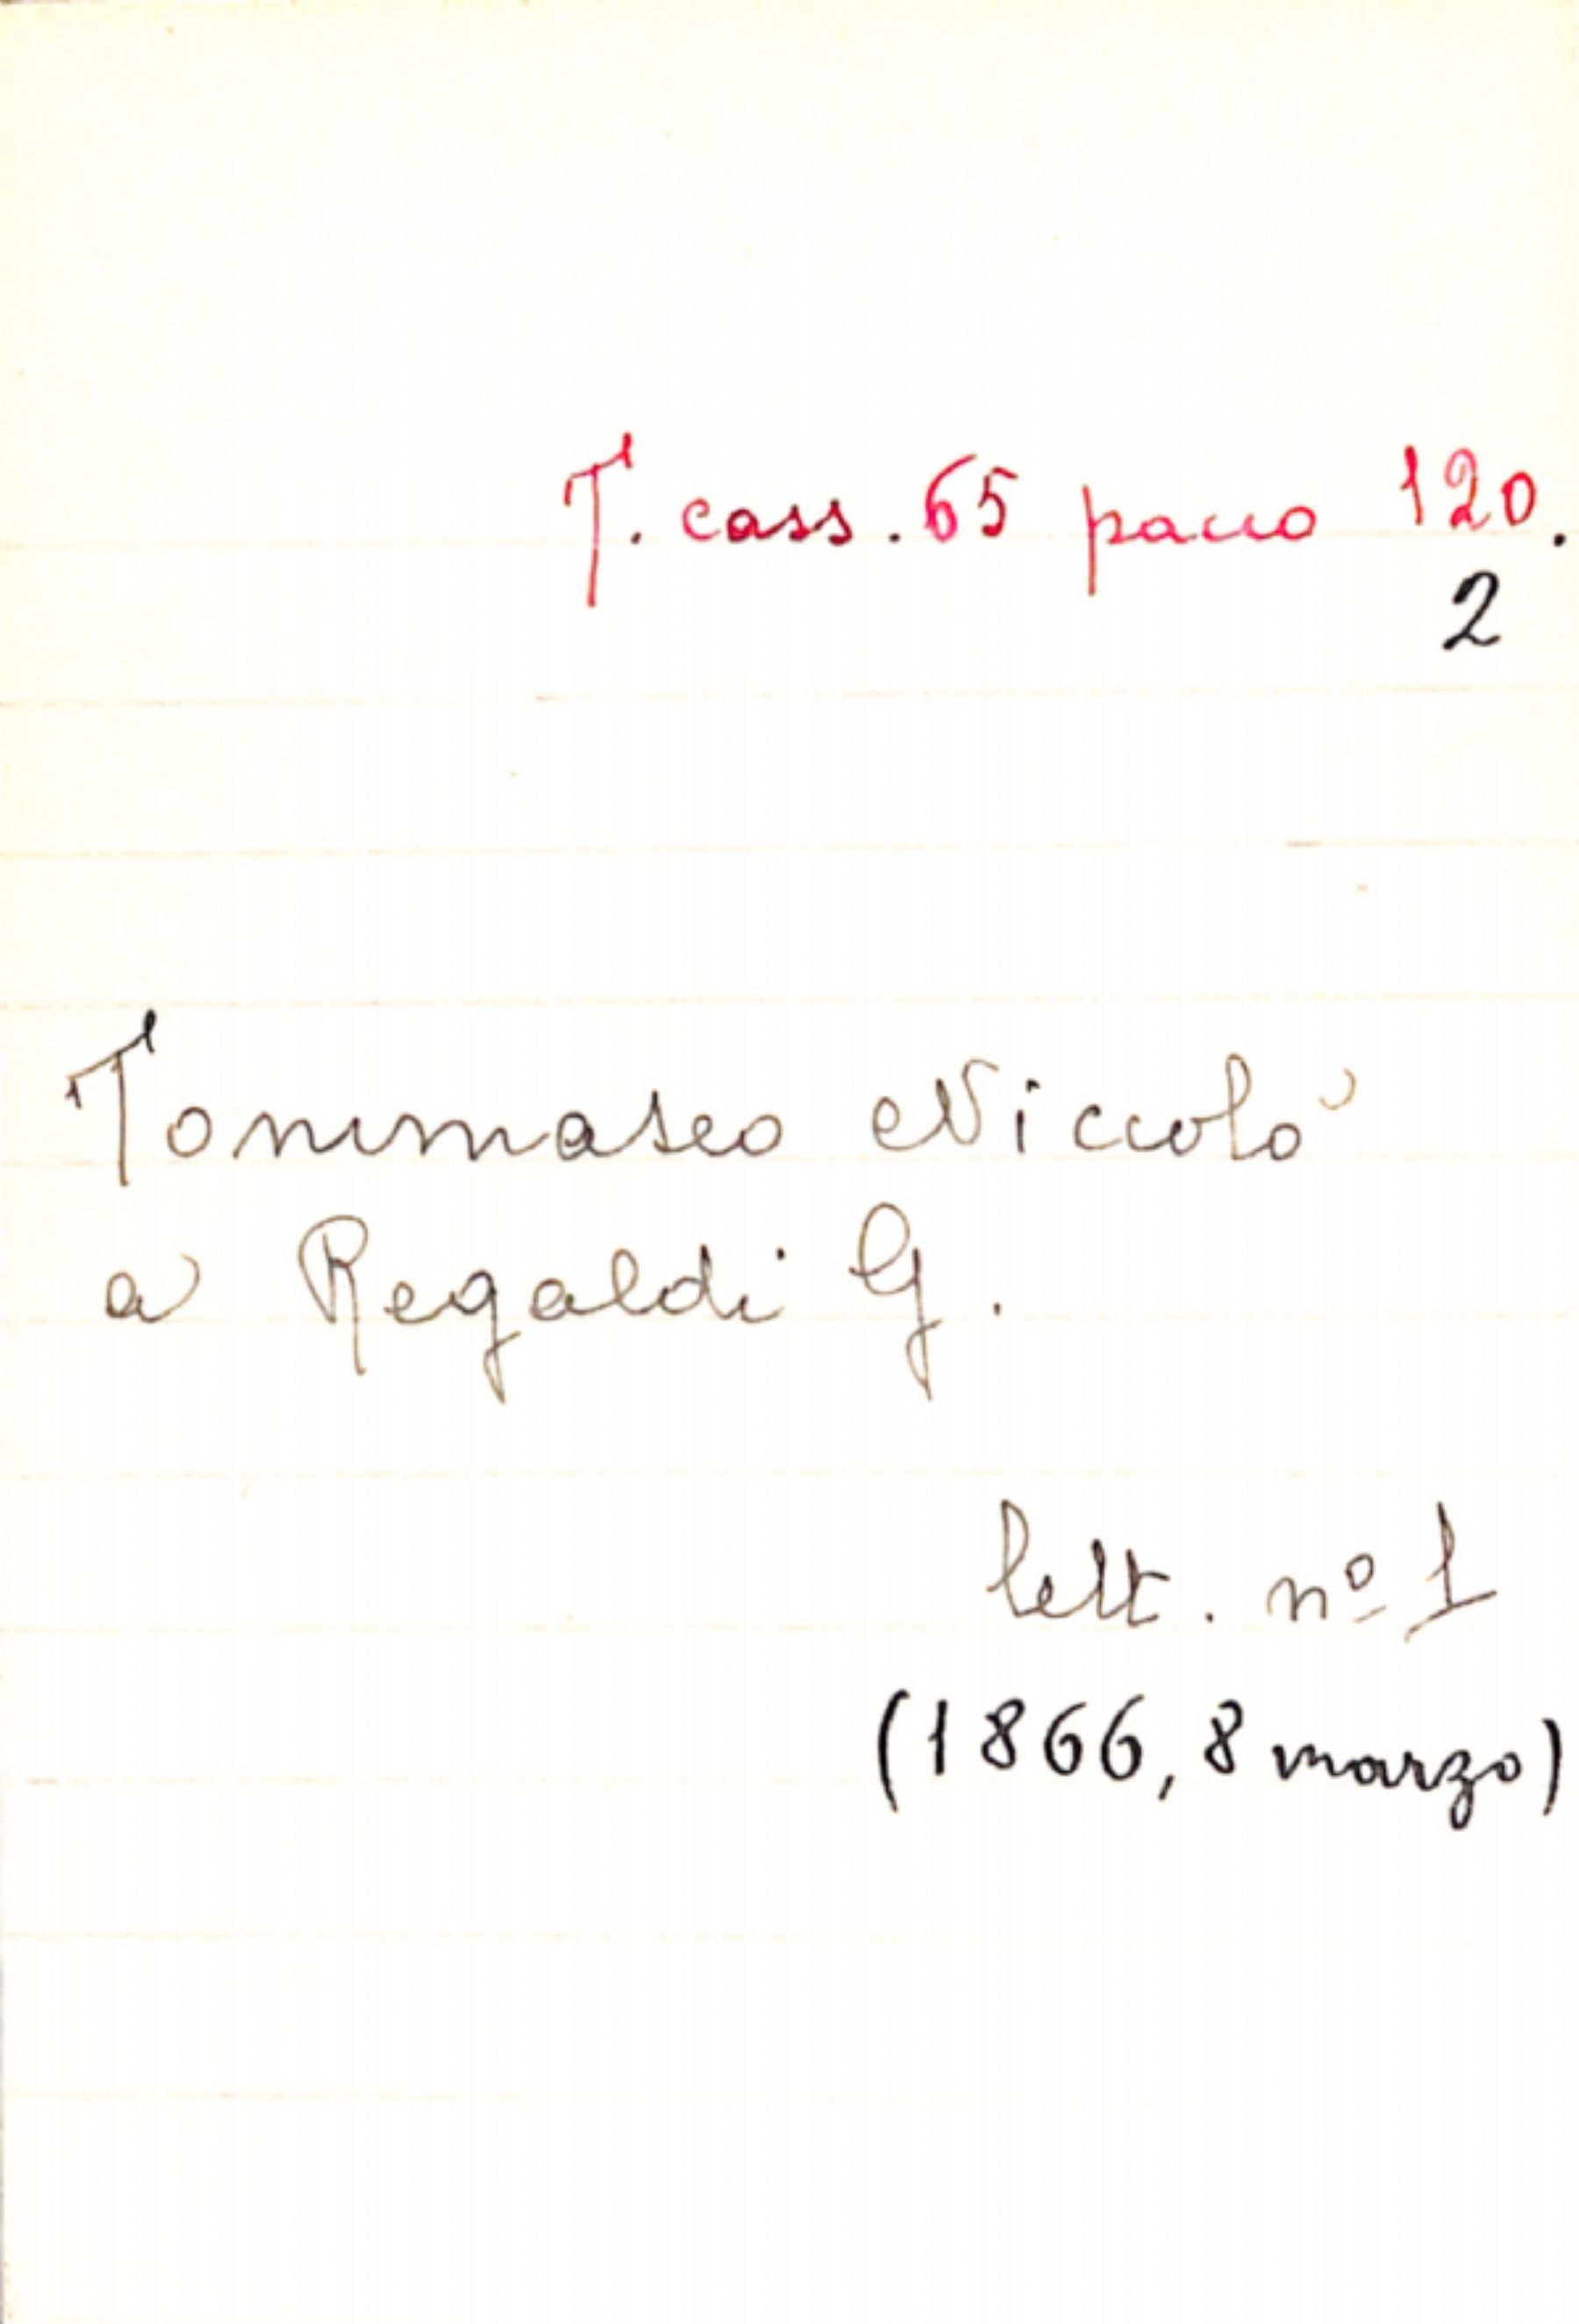 T. cass. 65 pacco 120.
2
Tommaseo Niccolò
a Regaldi G.
lett. nº 1
(1866, 8 marzo)